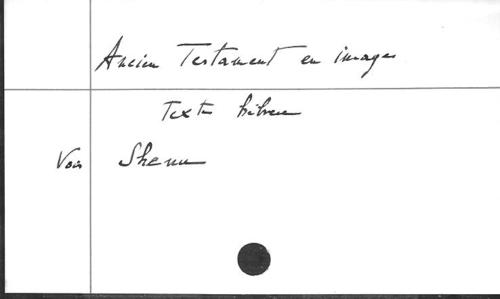 Ancien Testament en images
Texte hébreu
Voir Shenu